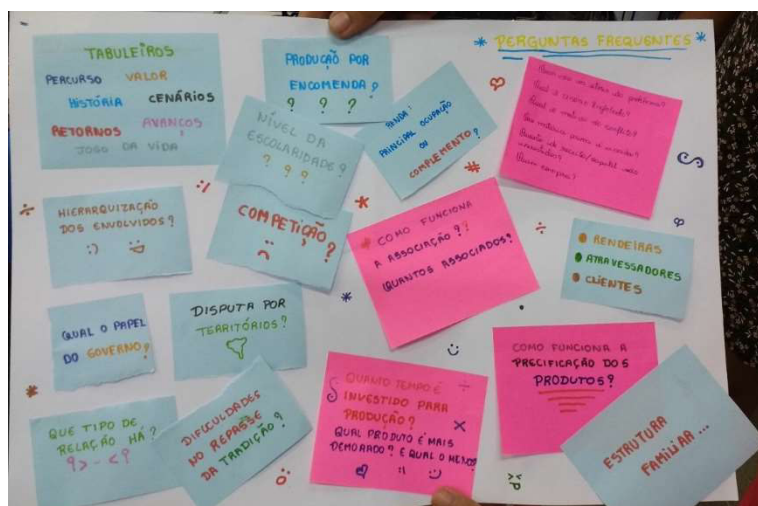 * PERGUNTAS FREQUENTES *
TABULEIROS
PERCURSO VALOR
HISTÓRIA CENÁRIOS
RETORNOS AVANÇOS
JOGO DA VIDA
PRODUÇÃO POR
ENCOMENDA ?
? ? ?
NÍVEL DA
ESCOLARIDADE?
? ? ?
RENDA:
PRINCIPAL OCUPAÇÃO
OU
COMPLEMENTO?
Qual o motivo do conflito?
HIERARQUIZAÇÃO
DOS ENVOLVIDOS?
:)
COMPETIÇÃO?
COMO FUNCIONA
A ASSOCIAÇÃO??
QUANTOS ASSOCIADOS?
RENDEIRAS
ATRAVESSADORES
CLIENTES
QUAL O PAPEL
DO GOVERNO?
DISPUTA POR
TERRITÓRIOS?
COMO FUNCIONA A
PRECIFICAÇÃO DOS
PRODUTOS?
QUE TIPO DE
RELAÇÃO HÁ?
?> - <?
DIFICULDADES
NO REPASSE
DA TRADIÇÃO?
QUANTO TEMPO É
INVESTIDO PARA
PRODUÇÃO?
QUAL PRODUTO É MAIS
DEMORADO? E QUAL O MENOS?
ESTRUTURA
FAMILIAR...